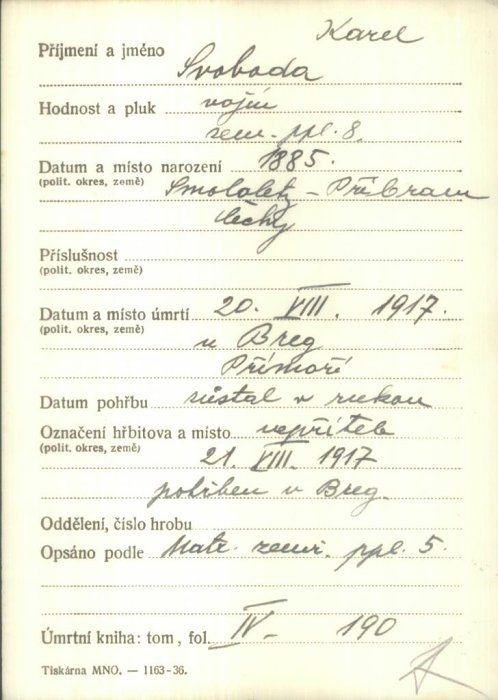 Karel
Příjmení a jméno Svoboda
Hodnost a pluk vojín
zem. ppl. 8.
Datum a místo narození 1885.
(polit. okres, země) Smolotely – Příbram
Čechy
Příslušnost
(polit. okres, země)
Datum a místo úmrtí 20. VIII. 1917.
(polit. okres, země) u Breg
Přímoří
Datum pohřbu zůstal v rukou
Označení hřbitova a místo nepřítele
(polit. okres, země) 21. VIII. 1917
pohřben v Breg.
Oddělení, číslo hrobu
Opsáno podle Matr. zemi. ppl. 5.
Úmrtní kniha: tom, fol. IV– 190
Tiskárna MNO. — 1163-36.